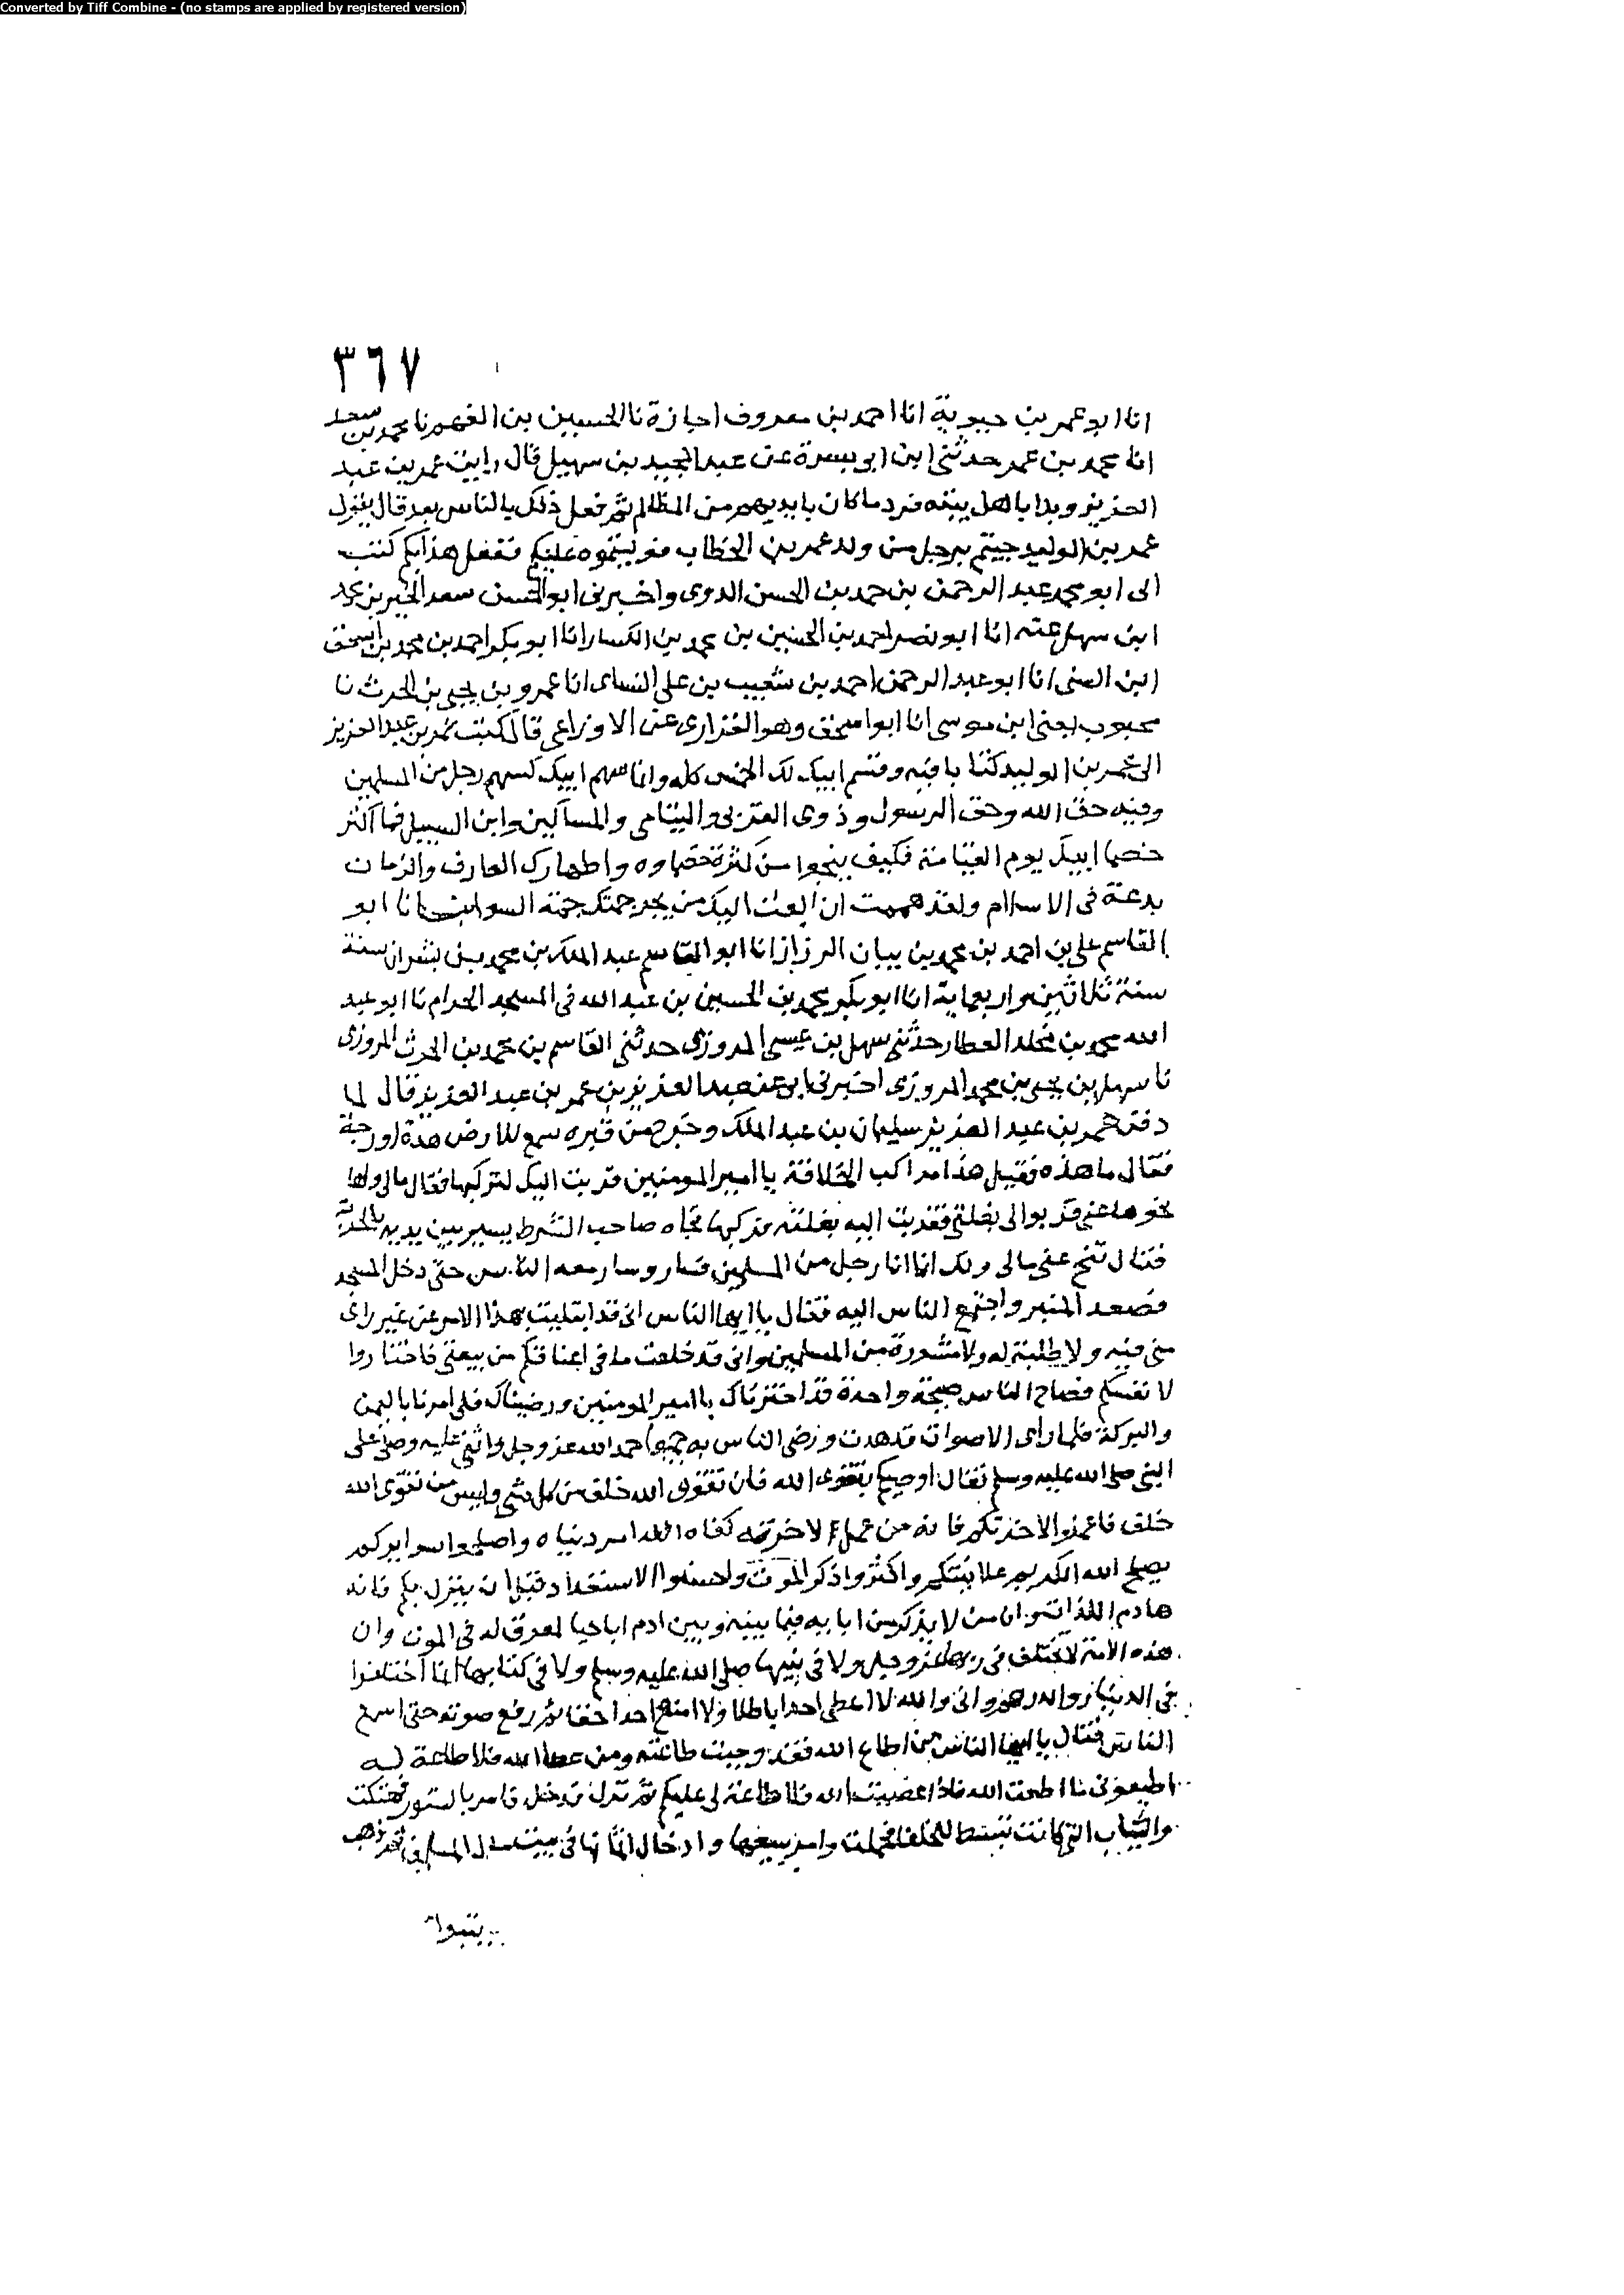 Converted by Tiff Combine - (no stamps are applied by registered version)
٣٦٧
انا ابو عمر بن حيوية انا احمد بن معروف اجازة نا الحسين بن الفهم نا محمد بن سعد
انا محمد بن عمر حدثني ابن ابي سبرة عن عبد المجيد بن سهيل قال رايت عمر بن عبد
العزيز وبدا باهل بيته فرد ما كان بايديهم من المظالم ثم فعل ذلك بالناس بعد قال يقول
عمر بن الوليد جيتم برجل من ولد عمر بن الخطاب فوليتموه عليكم ففعل هذا بكم كتب
الى ابو محمد عبد الرحمن بن حمد بن الحسن الدوى واخبرنى ابو الحسن سعد الخير بن محمد
ابن سهل عنه انا ابو نصر احمد بن الحسين بن محمد بن الكسار انا ابو بكر احمد بن محمد بن اسحق
ابن السنى انا ابو عبد الرحمن احمد بن شعيب بن على النساى انا عمرو بن يحيى بن الحرث نا
محبوب يعنى ابن موسى انا ابو اسحق وهو الفزارى عن الاوزاعى قال كتب عمر بن عبد العزيز
الى عمر بن الوليد كتابا فيه وقسم ابيك لك الخمس كله وانما سهم ابيك كسهم رجل من المسلمين
وفيه حق الله وحق الرسول وذوى القربى واليتامى والمساكين وابن السبيل فما اكثر
خصما ابيك يوم القيامة فكيف ينجوا من كثرت خصماوه واظهارك المعازف والزمار
بدعة فى الاسلام ولقد هممت ان ابعث اليك من يجز جمتك جمة السو انا ابو
القاسم على بن احمد بن محمد بن بيان الرزاز انا ابو القاسم عبد الملك بن محمد بن بشران سنة
سنة ثلاثين واربعماية انا ابو بكر محمد بن الحسين بن عبد الله فى المسجد الحرام نا ابو عبد
الله محمد بن مخلد العطار حدثنى سهل بن عيسى المروزى حدثنى القاسم بن محمد بن الحرث المروزى
نا سهل بن يحيى بن محمد المروزى اخبرنى ابى عن عبد العزيز بن عمر بن عبد العزيز قال لما
دفن عمر بن عبد العزيز سليمان بن عبد الملك وخرج من قبره سمع للارض هدة او رجة
فقال ما هذه فقيل هذا مراكب الخلافة يا امير المومنين قربت اليك لتركبها فقال مالى ولها
نحوها عنى قربوا الى بغلتى فقربت اليه بغلته فركبها فجاه صاحب الشرط يسير بين يديه بالحربة
فقال تنح عنى مالى ولك انما انا رجل من المسلمين فسار وسار معه الناس حتى دخل المسجد
فصعد المنبر واجتمع الناس اليه فقال يا ايها الناس انى قد ابتليت بهذا الامر عن غير راى
منى فيه ولا طلبة له ولا مشورة من المسلمين وانى قد خلعت ما فى اعناقكم من بيعتى فاختاروا
لانفسكم فصاح الناس صيحة واحدة قد اخترناك يا امير المومنين ورضيناك فلى امرنا باليمن
والبركة فلما راى الاصوات قد هدت ورضى الناس به جميعا حمد الله عز وجل واثنى عليه وصلى على
النبى صلى الله عليه وسلم فقال اوصيكم بتقوى الله فان تقوى الله خلف من كل شى وليس من تقوى الله
خلف فاعملوا لاخرتكم فانه من عمل لاخرته كفاه الله امر دنياه واصلحوا سرايركم
يصلح الله الكريم علانيتكم واكثروا ذكر الموت واحسنوا الاستعداد قبل ان ينزل بكم فانه
هادم اللذات وان من لا يذكر من ابايه فيما بينه وبين ادم ابا حيا لمعرق له فى الموت وان
هذه الامة لا تختلف فى ربها عز وجل ولا فى نبيها صلى الله عليه وسلم ولا فى كتابها انما اختلفوا
فى الدينار والدرهم وانى والله لا اعطى احدا باطلا ولا امنع احدا حقا ثم رفع صوته حتى اسمع
الناس فقال يا ايها الناس من اطاع الله فقد وجبت طاعته ومن عصا الله فلا طاعة له
اطيعونى ما اطعت الله فاذا عصيت الله فلا طاعة لى عليكم ثم نزل فدخل فامر بالستور فهتكت
والثياب التى كانت تبسط للخلفا فحملت وامر ببيعها وادخال اثمانها فى بيت مال المسلمين ثم ذهب
يتبوا